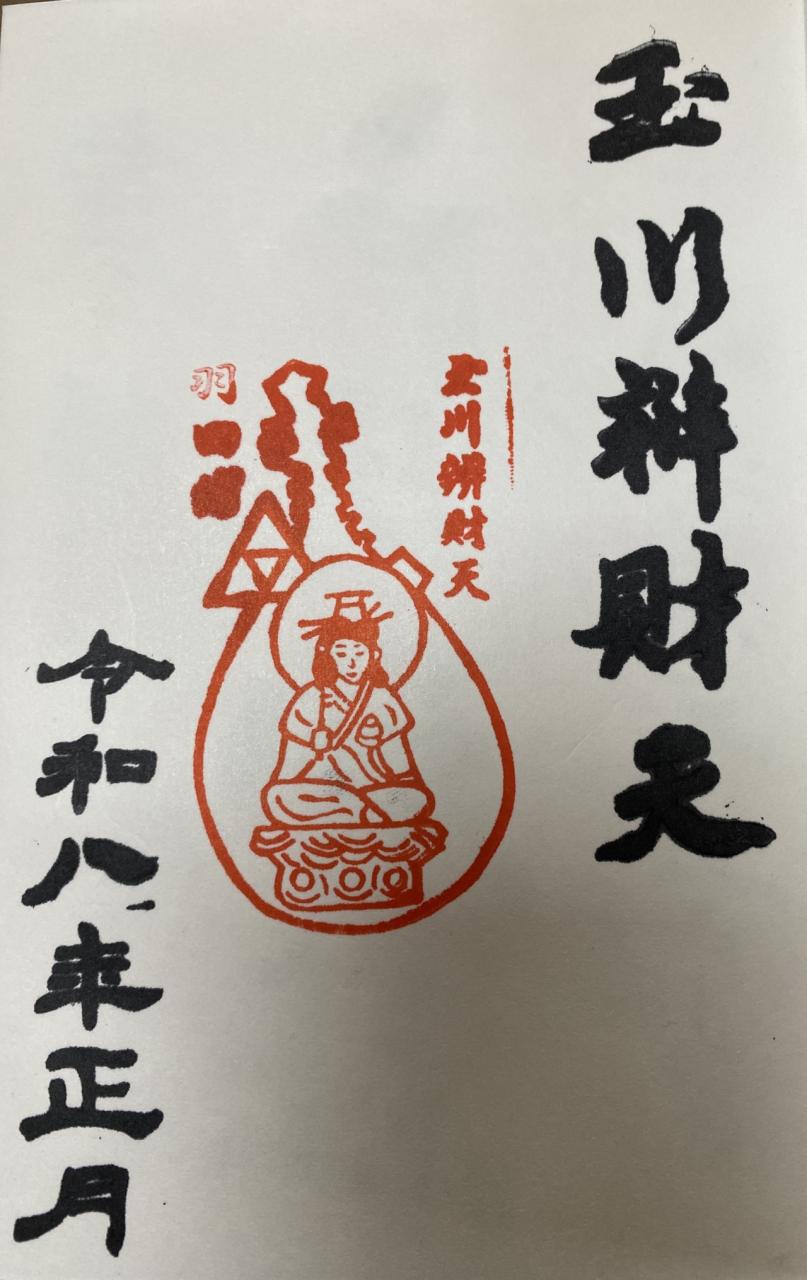 玉川辨財天
玉川辨財天
羽田
令和八年正月